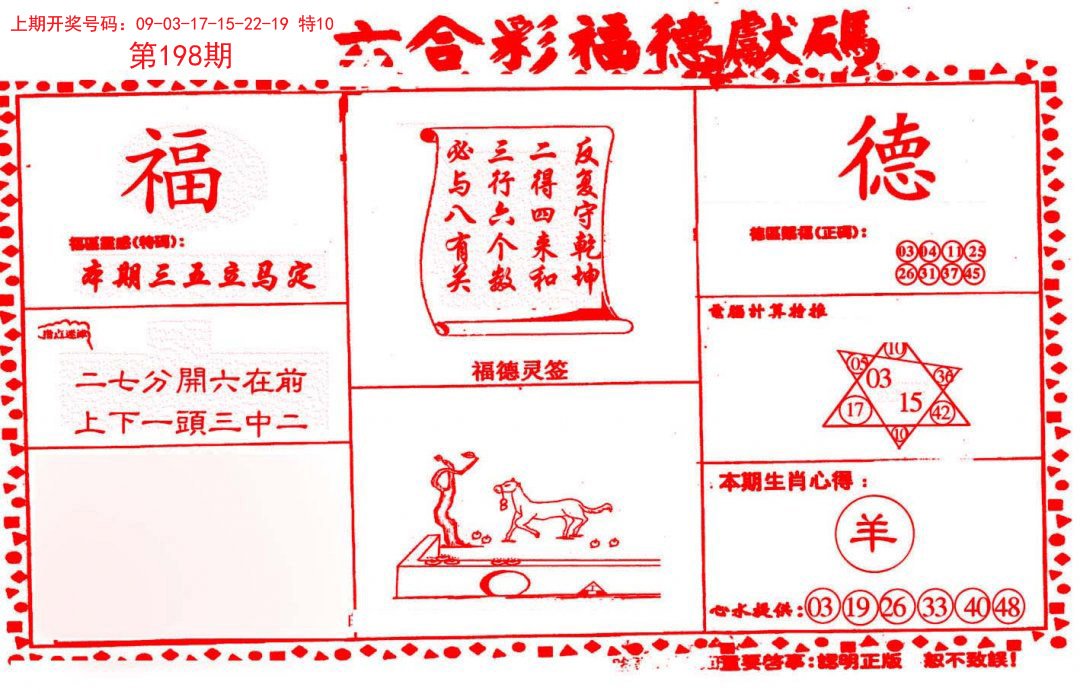 上期开奖号码：09-03-17-15-22-19 特10
第198期
六合彩福德獻碼
福
福區靈感(特碼):
本期三五立马定
二七分開六在前
上下一頭三中二
反复守乾坤
二得四来和
三行六个数
必与八有关
福德灵签
德
(正碼):
03 04 11 25
26 31 37 45
電腦計算
10
05 03 36
17 15 42
10
本期生肖心得：
羊
心水提供:03 19 26 33 40 48
重要啓事:認明正版 恕不致誤!